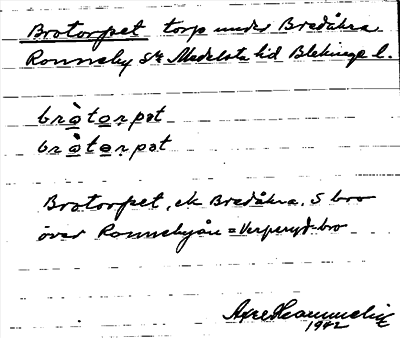 Brotorpet torp under Bredåkra
Ronneby sn Medelsta hd Blekinge l.
bròtorpət
bròtorpət
Brotorpet, ek Bredåkra, S bro
över Ronnebyån = Verperyd-bro
1942